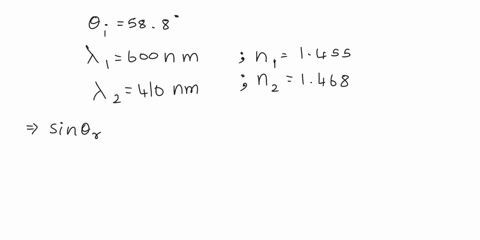 θi = 58.8°
λ1 = 600 nm ; n1 = 1.455
λ2 = 410 nm ; n2 = 1.468
⇒ sinθr